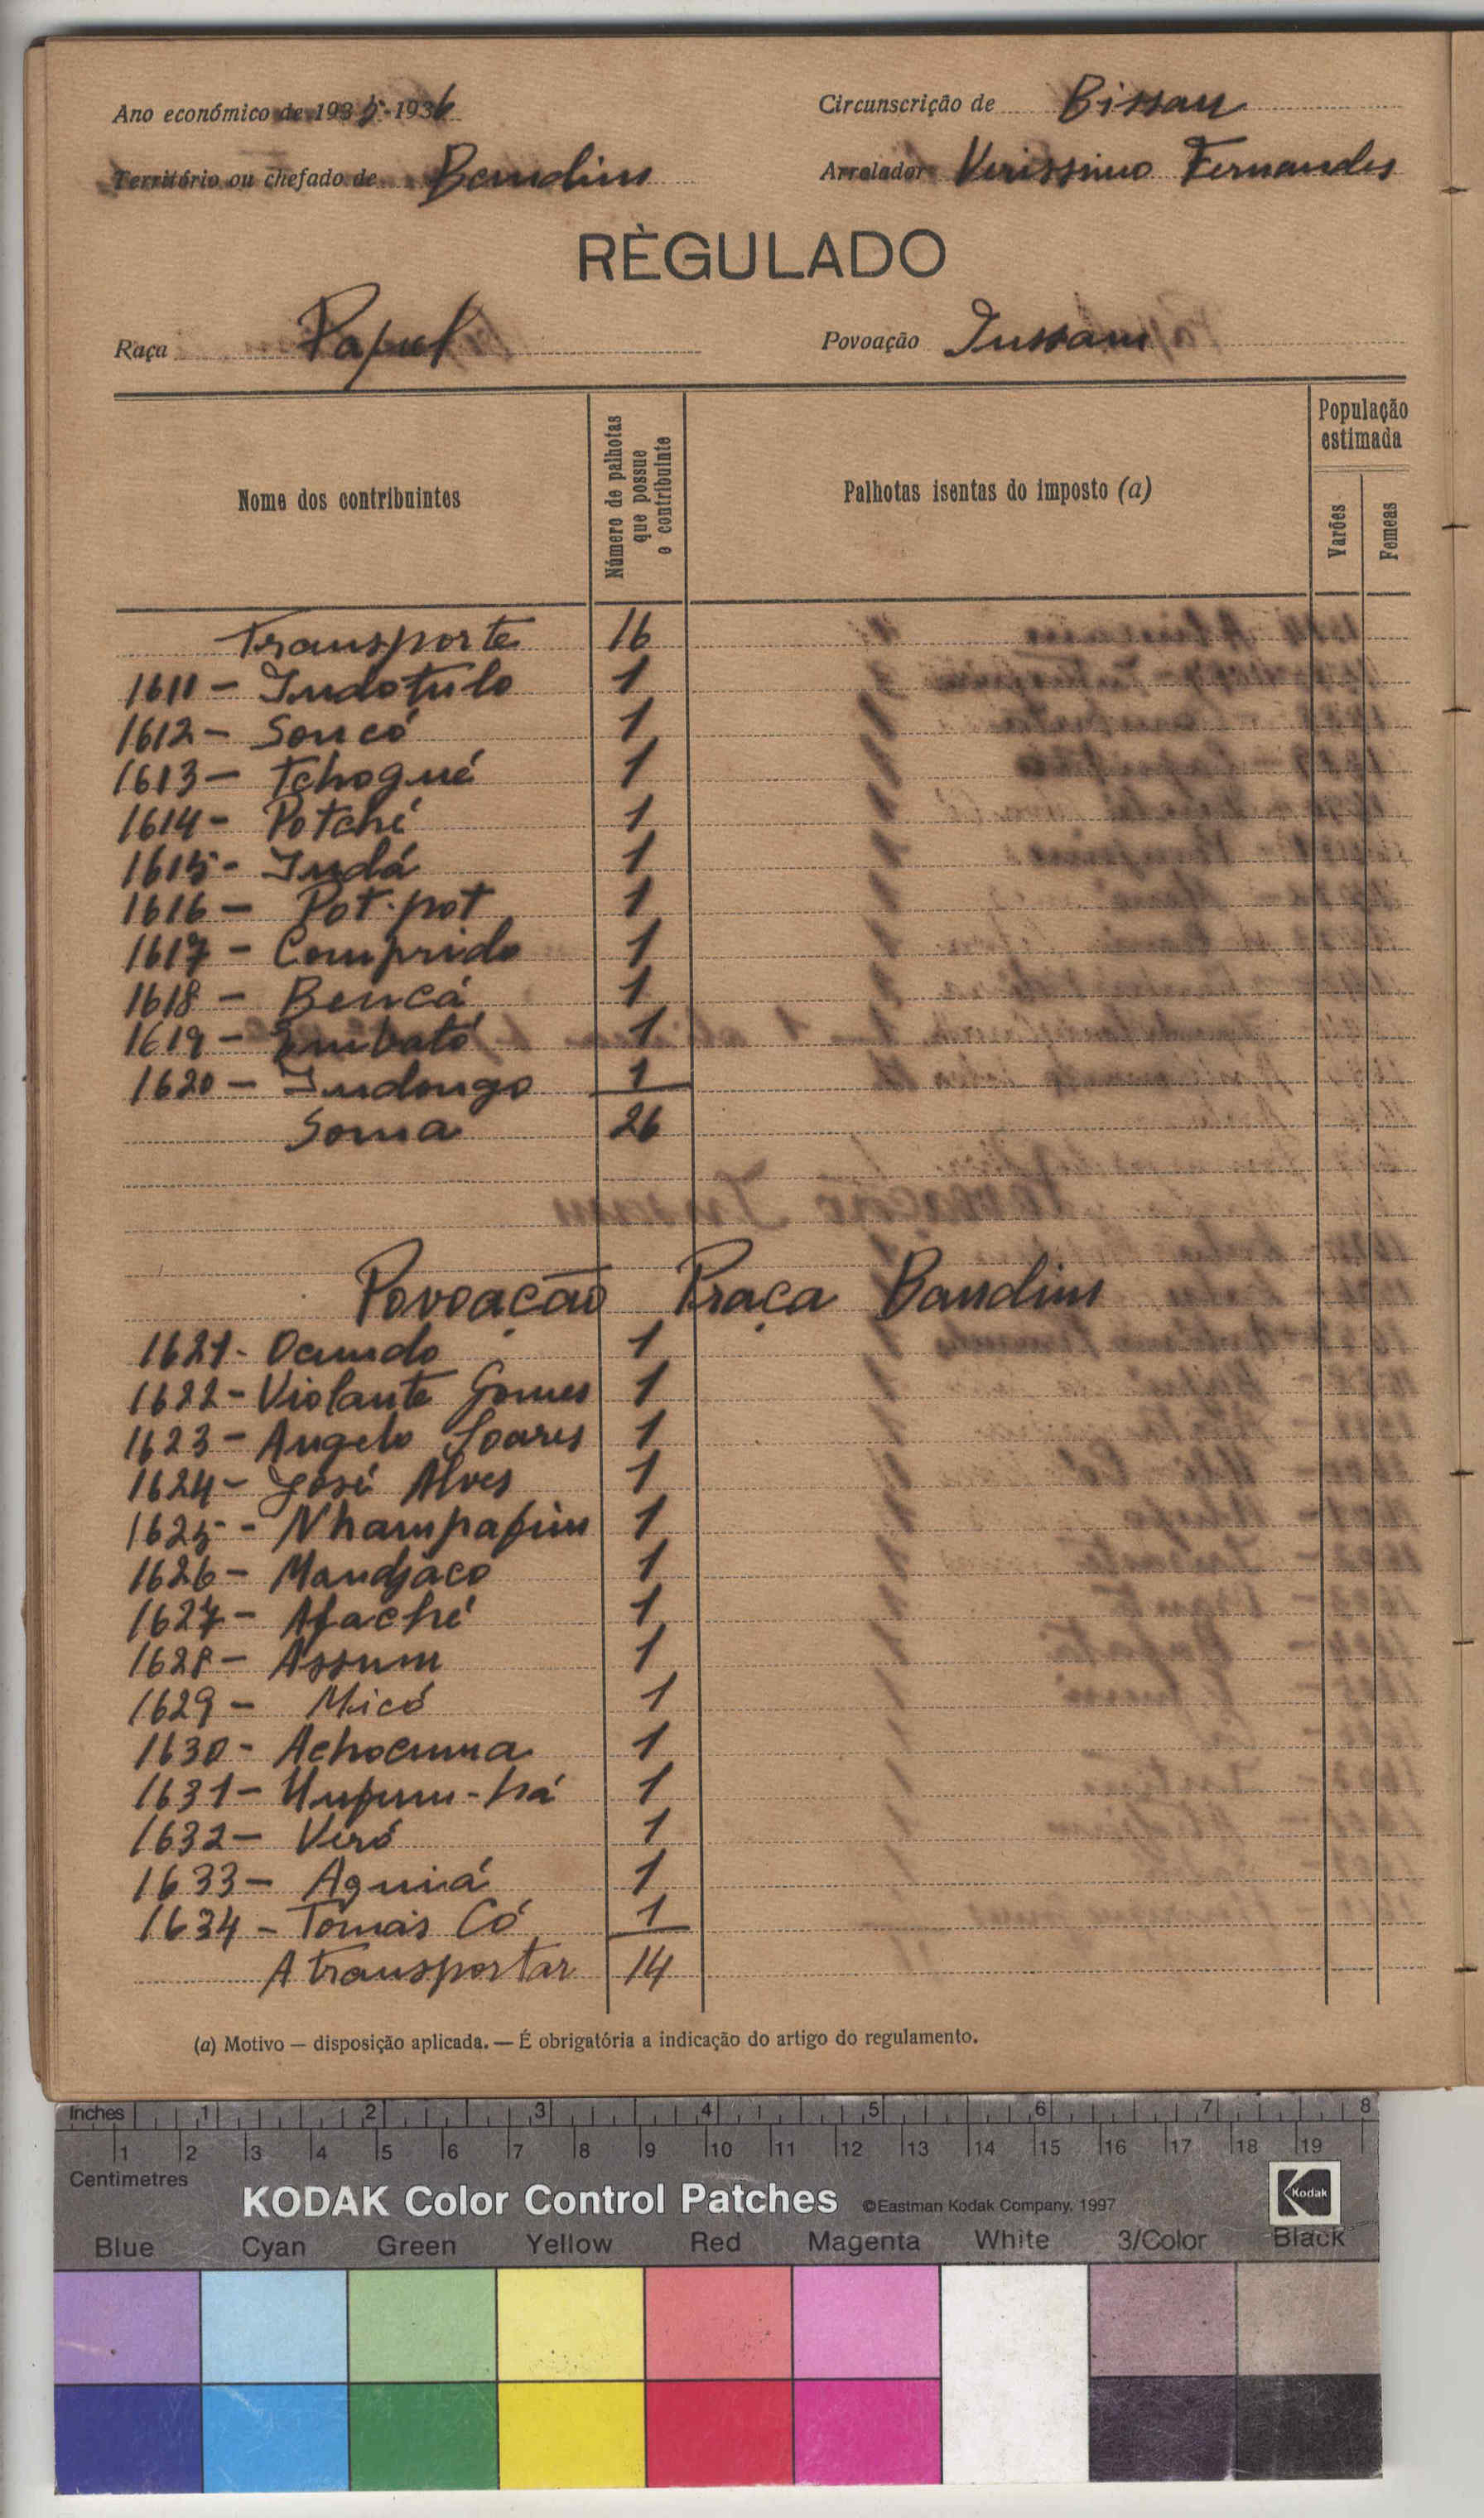 Ano económico de 1935-1936
Circunscrição de Bissau
Território ou chefado de Bandim
Arrolador Verissimo Fernandes
RÈGULADO
Raça Papel
Povoação Jussam
Nome dos contribuintes
Número de palhotas que possue o contribuinte
Palhotas isentas do imposto (a)
População estimada
Varões
Femeas
Transporte 16
1611 - Indotulo 1
1612 - Soncó 1
1613 - Tchogué 1
1614 - Potché 1
1615 - Indá 1
1616 - Pot-pot 1
1617 - Comprido 1
1618 - Bencá 1
1619 - Embató 1
1620 - Indongo 1
Soma 26
Povoação Praça Bandim
1621 - Ocundo 1
1622 - Violante Gomes 1
1623 - Angelo Soares 1
1624 - José Alves 1
1625 - Nhampafim 1
1626 - Mandjaco 1
1627 - Afaché 1
1628 - Assum 1
1629 - Micó 1
1630 - 1
1631 - 1
1632 - Veró 1
1633 - 1
1634 - Tomás Có 1
A transportar 14
(a) Motivo — disposição aplicada. — É obrigatória a indicação do artigo do regulamento.
Inches 1 2 3 4 5 6 7 8
1 2 3 4 5 6 7 8 9 10 11 12 13 14 15 16 17 18 19
Centimetres
KODAK Color Control Patches ©Eastman Kodak Company, 1997 Kodak
Blue Cyan Green Yellow Red Magenta White 3/Color Black